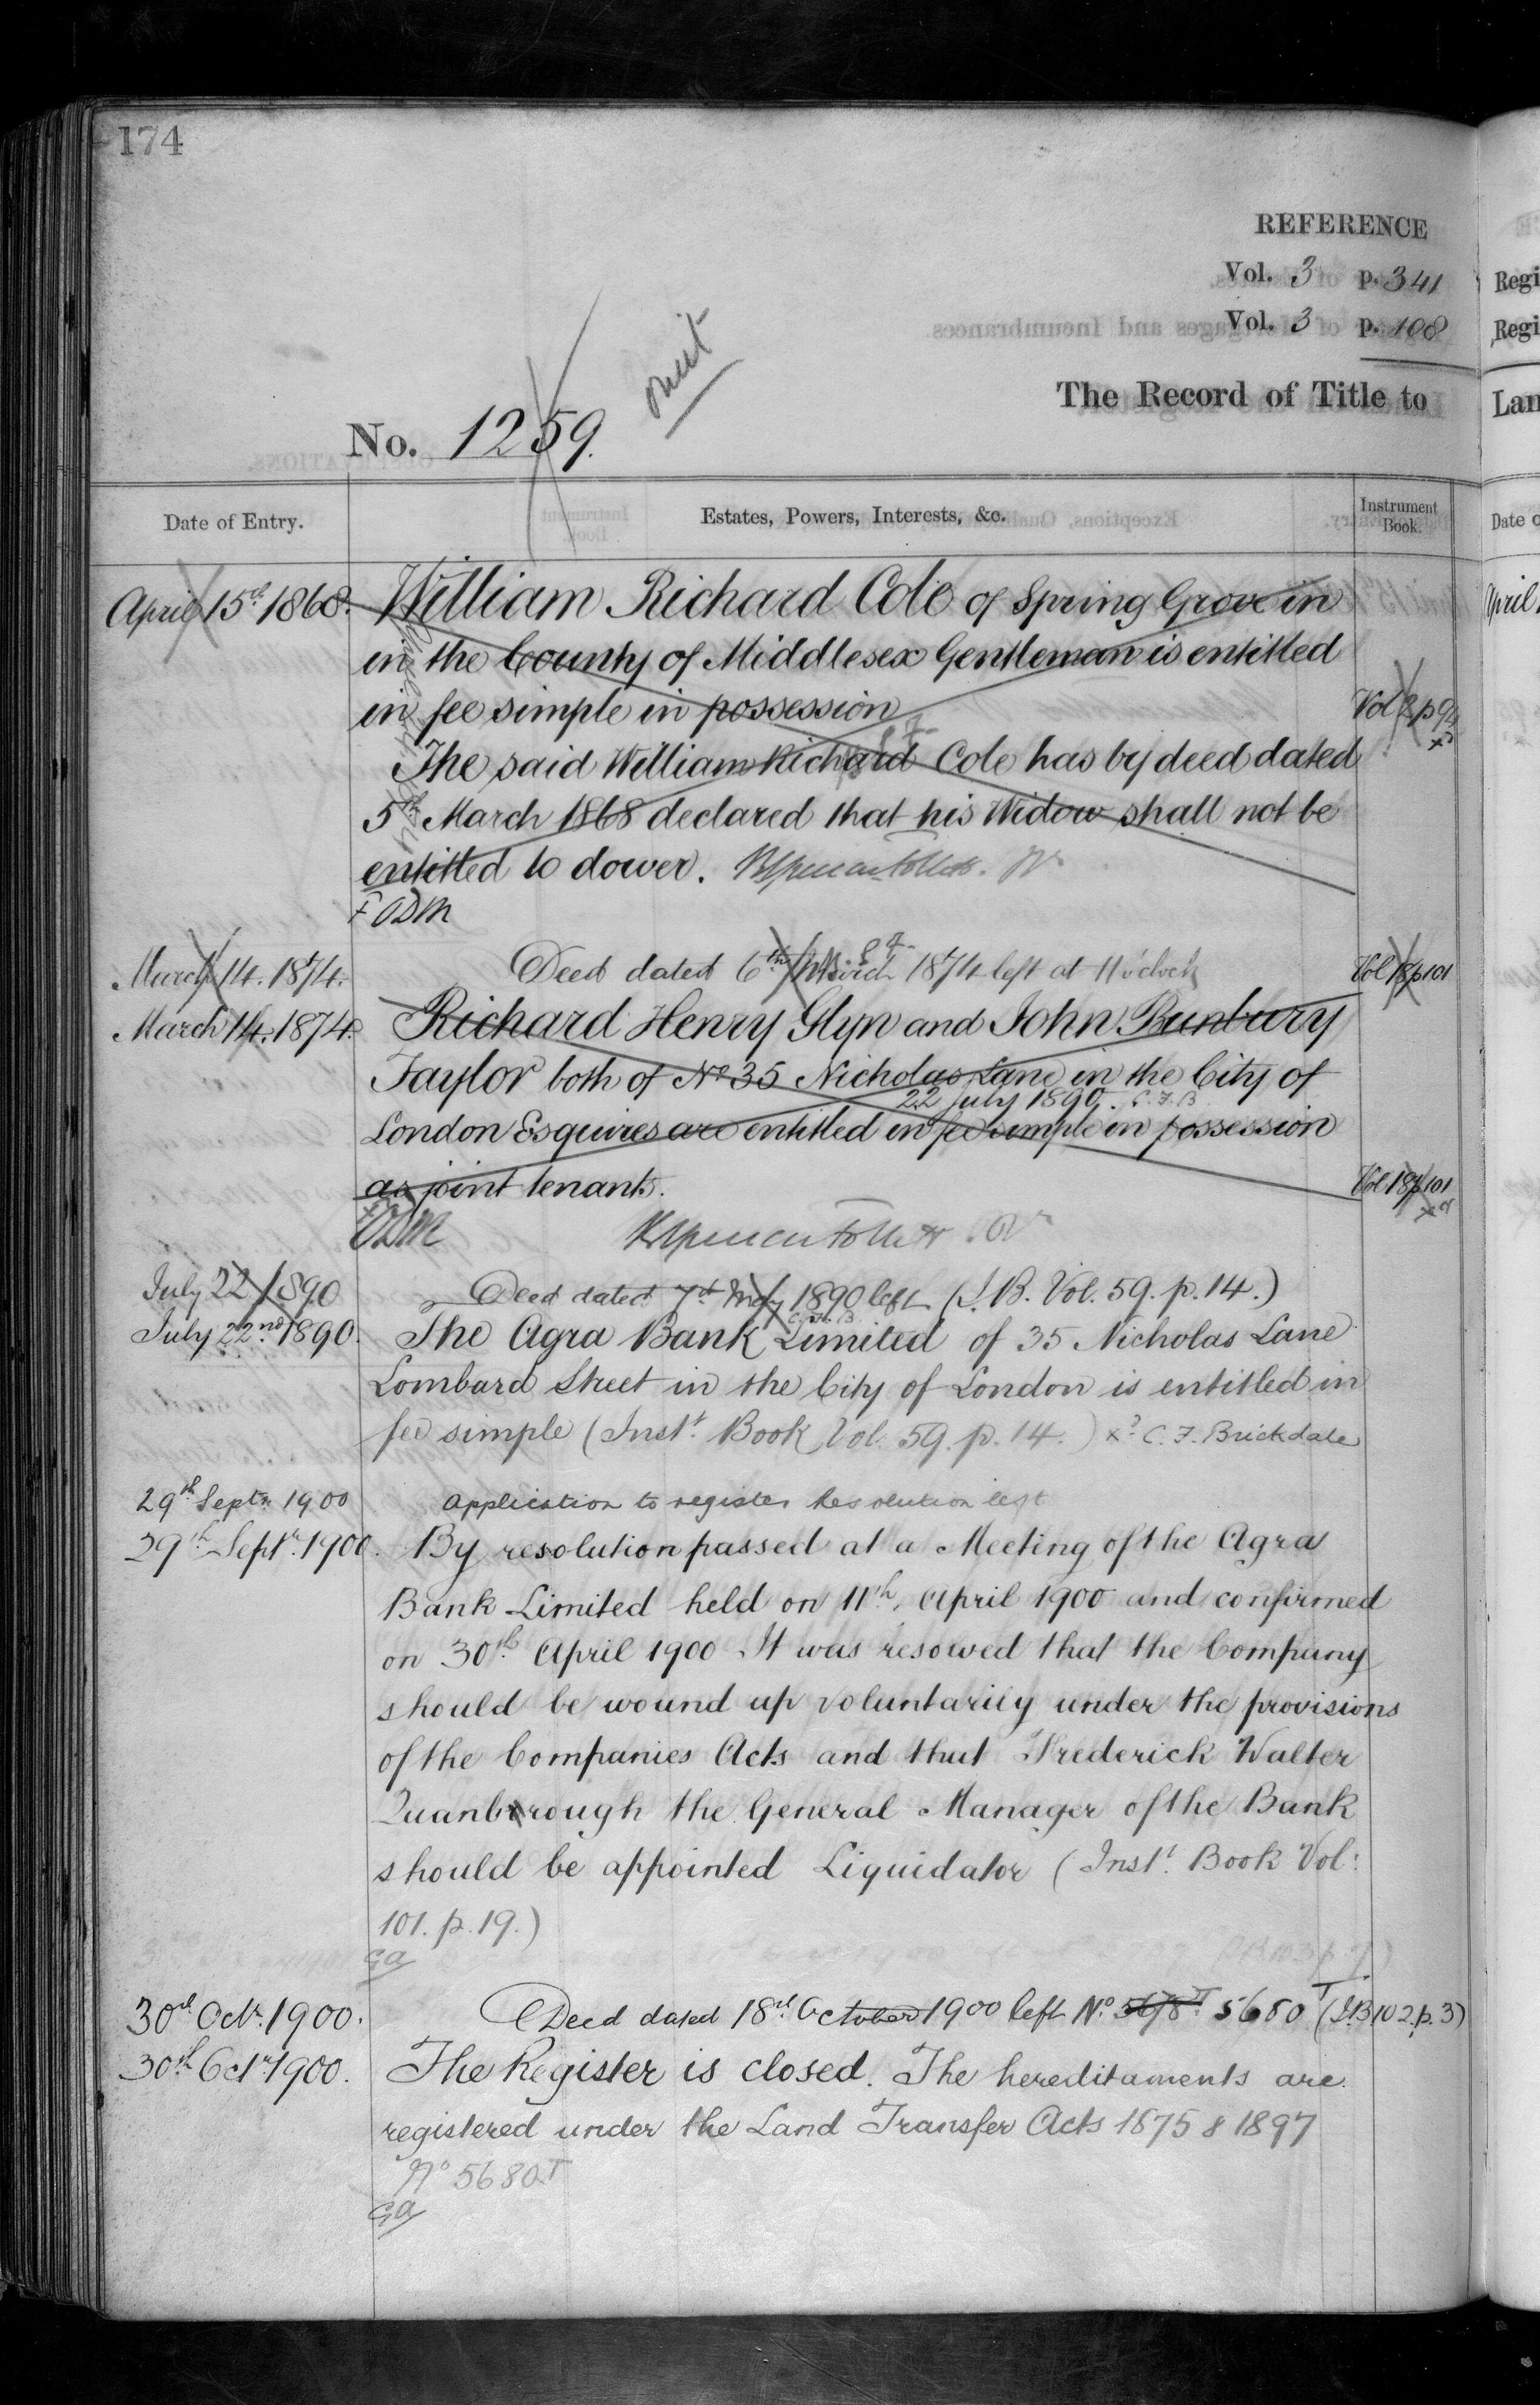 174
REFERENCE
Vol. 3 p. 341
Vol. 3 p. 108
The Record of Title to
No. 1259.
Date of Entry. Estates, Powers, Interests, &c. Instrument Book.
April 15th 1868. William Richard Cole of Spring Grove in
in the County of Middlesex Gentleman is entitled
in fee simple in possession
The said William Richard Cole has by deed dated
5th March 1868 declared that his Widow shall not be
entitled to dower.
March 14. 1874. Deed dated 6th March 1874 left at 11 o'clock Vol 18 p 101
March 14. 1874. Richard Henry Glyn and John Bunbury
Taylor both of No 35 Nicholas Lane in the City of
22 July 1890. C.F.B
London Esquires are entitled in fee simple in possession
as joint tenants. Vol 18 p 101
July 22 1890 Deed dated 7th May 1890 left (I.B. Vol. 59. p. 14.)
July 22nd 1890. The Agra Bank Limited of 35 Nicholas Lane
Lombard Street in the City of London is entitled in
fee simple (Inst. Book Vol. 59. p. 14.) C. F. Brickdale
29th Septr 1900 Application to register Resolution left
29th Septr. 1900. By resolution passed at a Meeting of the Agra
Bank Limited held on 11th. April 1900 and confirmed
on 30th April 1900 It was resolved that the Company
should be wound up voluntarily under the provisions
of the Companies Acts and that Frederick Walter
Quanbrough the General Manager of the Bank
should be appointed Liquidator (Inst. Book Vol:
101. p. 19.)
GA
30th Octr. 1900. Deed dated 18th October 1900 left No. 5678T 5680T (I.B 102 p. 3)
30th Octr 1900. The Register is closed. The hereditaments are
registered under the Land Transfer Acts 1875 & 1897
No 5680T
GA
Regi
Regi
Lan
Date o
April